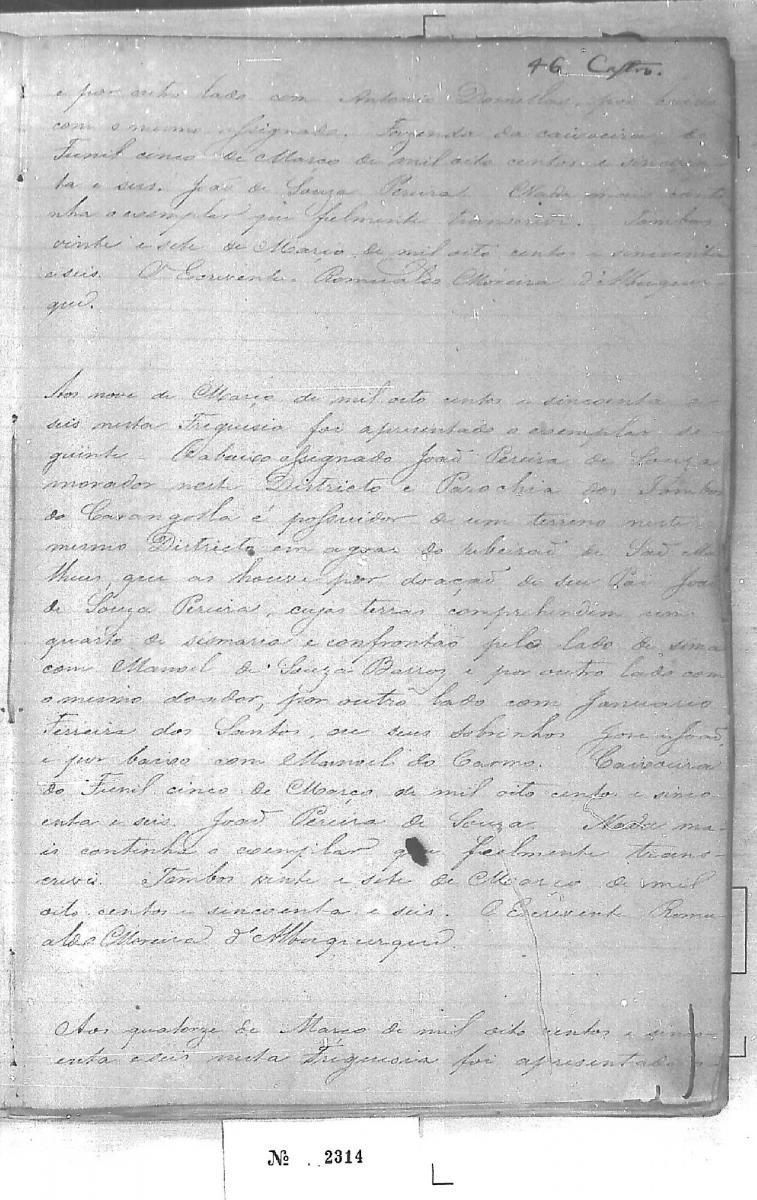 46 Castro.
e por outro lado com Antonio Dornellas, por
com o mesmo assignado. Fazenda da caixoeira do
Funil cinco de Março de mil oito centos e sincoen
ta e seis. João de Souza Pereira. Nada mais conti
nha o exemplar que fielmente transcrevi. Tombos
vinte e sete de Março de mil oito centos e sincoenta
e seis. O Escrivente Romualdo Moreira d'Albuquer-
que.
Aos nove de Março de mil oito centos e sincoenta e
seis nesta Freguesia foi apresentado o exemplar se-
guinte - O abaixo assignado João Pereira de Souza
morador neste Districto e Parochia dos Tombos
do Carangolla é possuidor de um terreno neste
mesmo Districto em agoas do ribeirão de São Ma
theus, que as houve por doação de seu Pai João
de Souza Pereira, cujas terras comprehendem um
quarto de sismaria e confrontão pelo lado de sima
com Manoel de Souza Barroz e por outro lado com
o mesmo doador, por outro lado com Januario
Ferreira dos Santos, ou seus sobrinhos José e João,
e por baixo com Manoel do Carmo. Caixoeira
do Funil cinco de Março de mil oito cento e sinco
enta e seis. João Pereira de Souza. Nada ma-
is continha o exemplar que fielmente trans-
crevi. Tombos vinte e sete de Março de mil
oito centos e sincoenta e seis. O Escrivente Romu-
aldo Moreira d'Albuquerque.
Aos quatorze de Março de mil oito centos e sinco-
enta e seis nesta Freguesia foi apresentado o
№ 2314